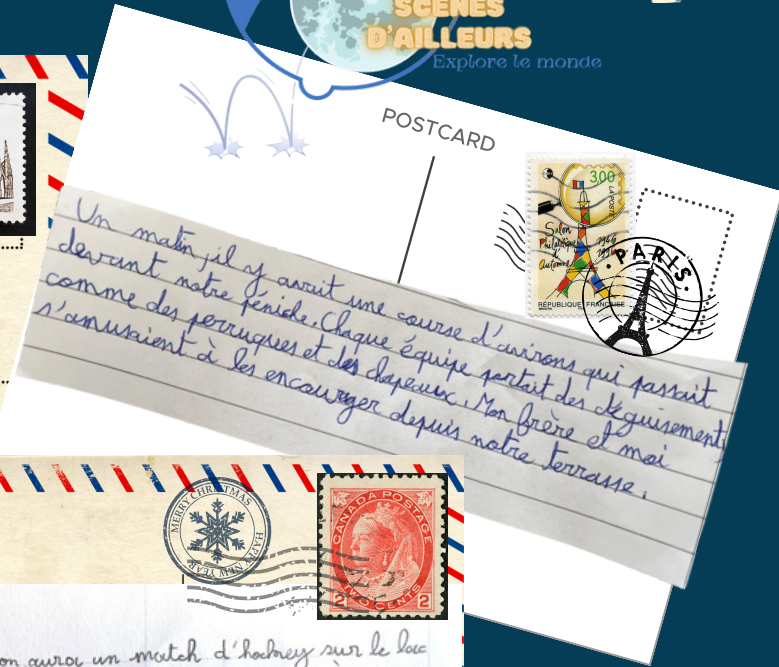 SCÈNES
D'AILLEURS
Explore le monde
POSTCARD
3,00
LA POSTE
Salon
Philatélique
d'Automne
1946
RÉPUBLIQUE FRANÇAISE
PARIS
Un matin, il y avait une course d'avirons qui passait
devant notre péniche. Chaque équipe portait des déguisements
comme des perruques et des chapeaux. Mon frère et moi
s'amusaient à les encourager depuis notre terrasse.
MERRY CHRISTMAS
HAPPY NEW YEAR
CANADA POSTAGE
2 TWO CENTS 2
on aura un match d'hockey sur le lac